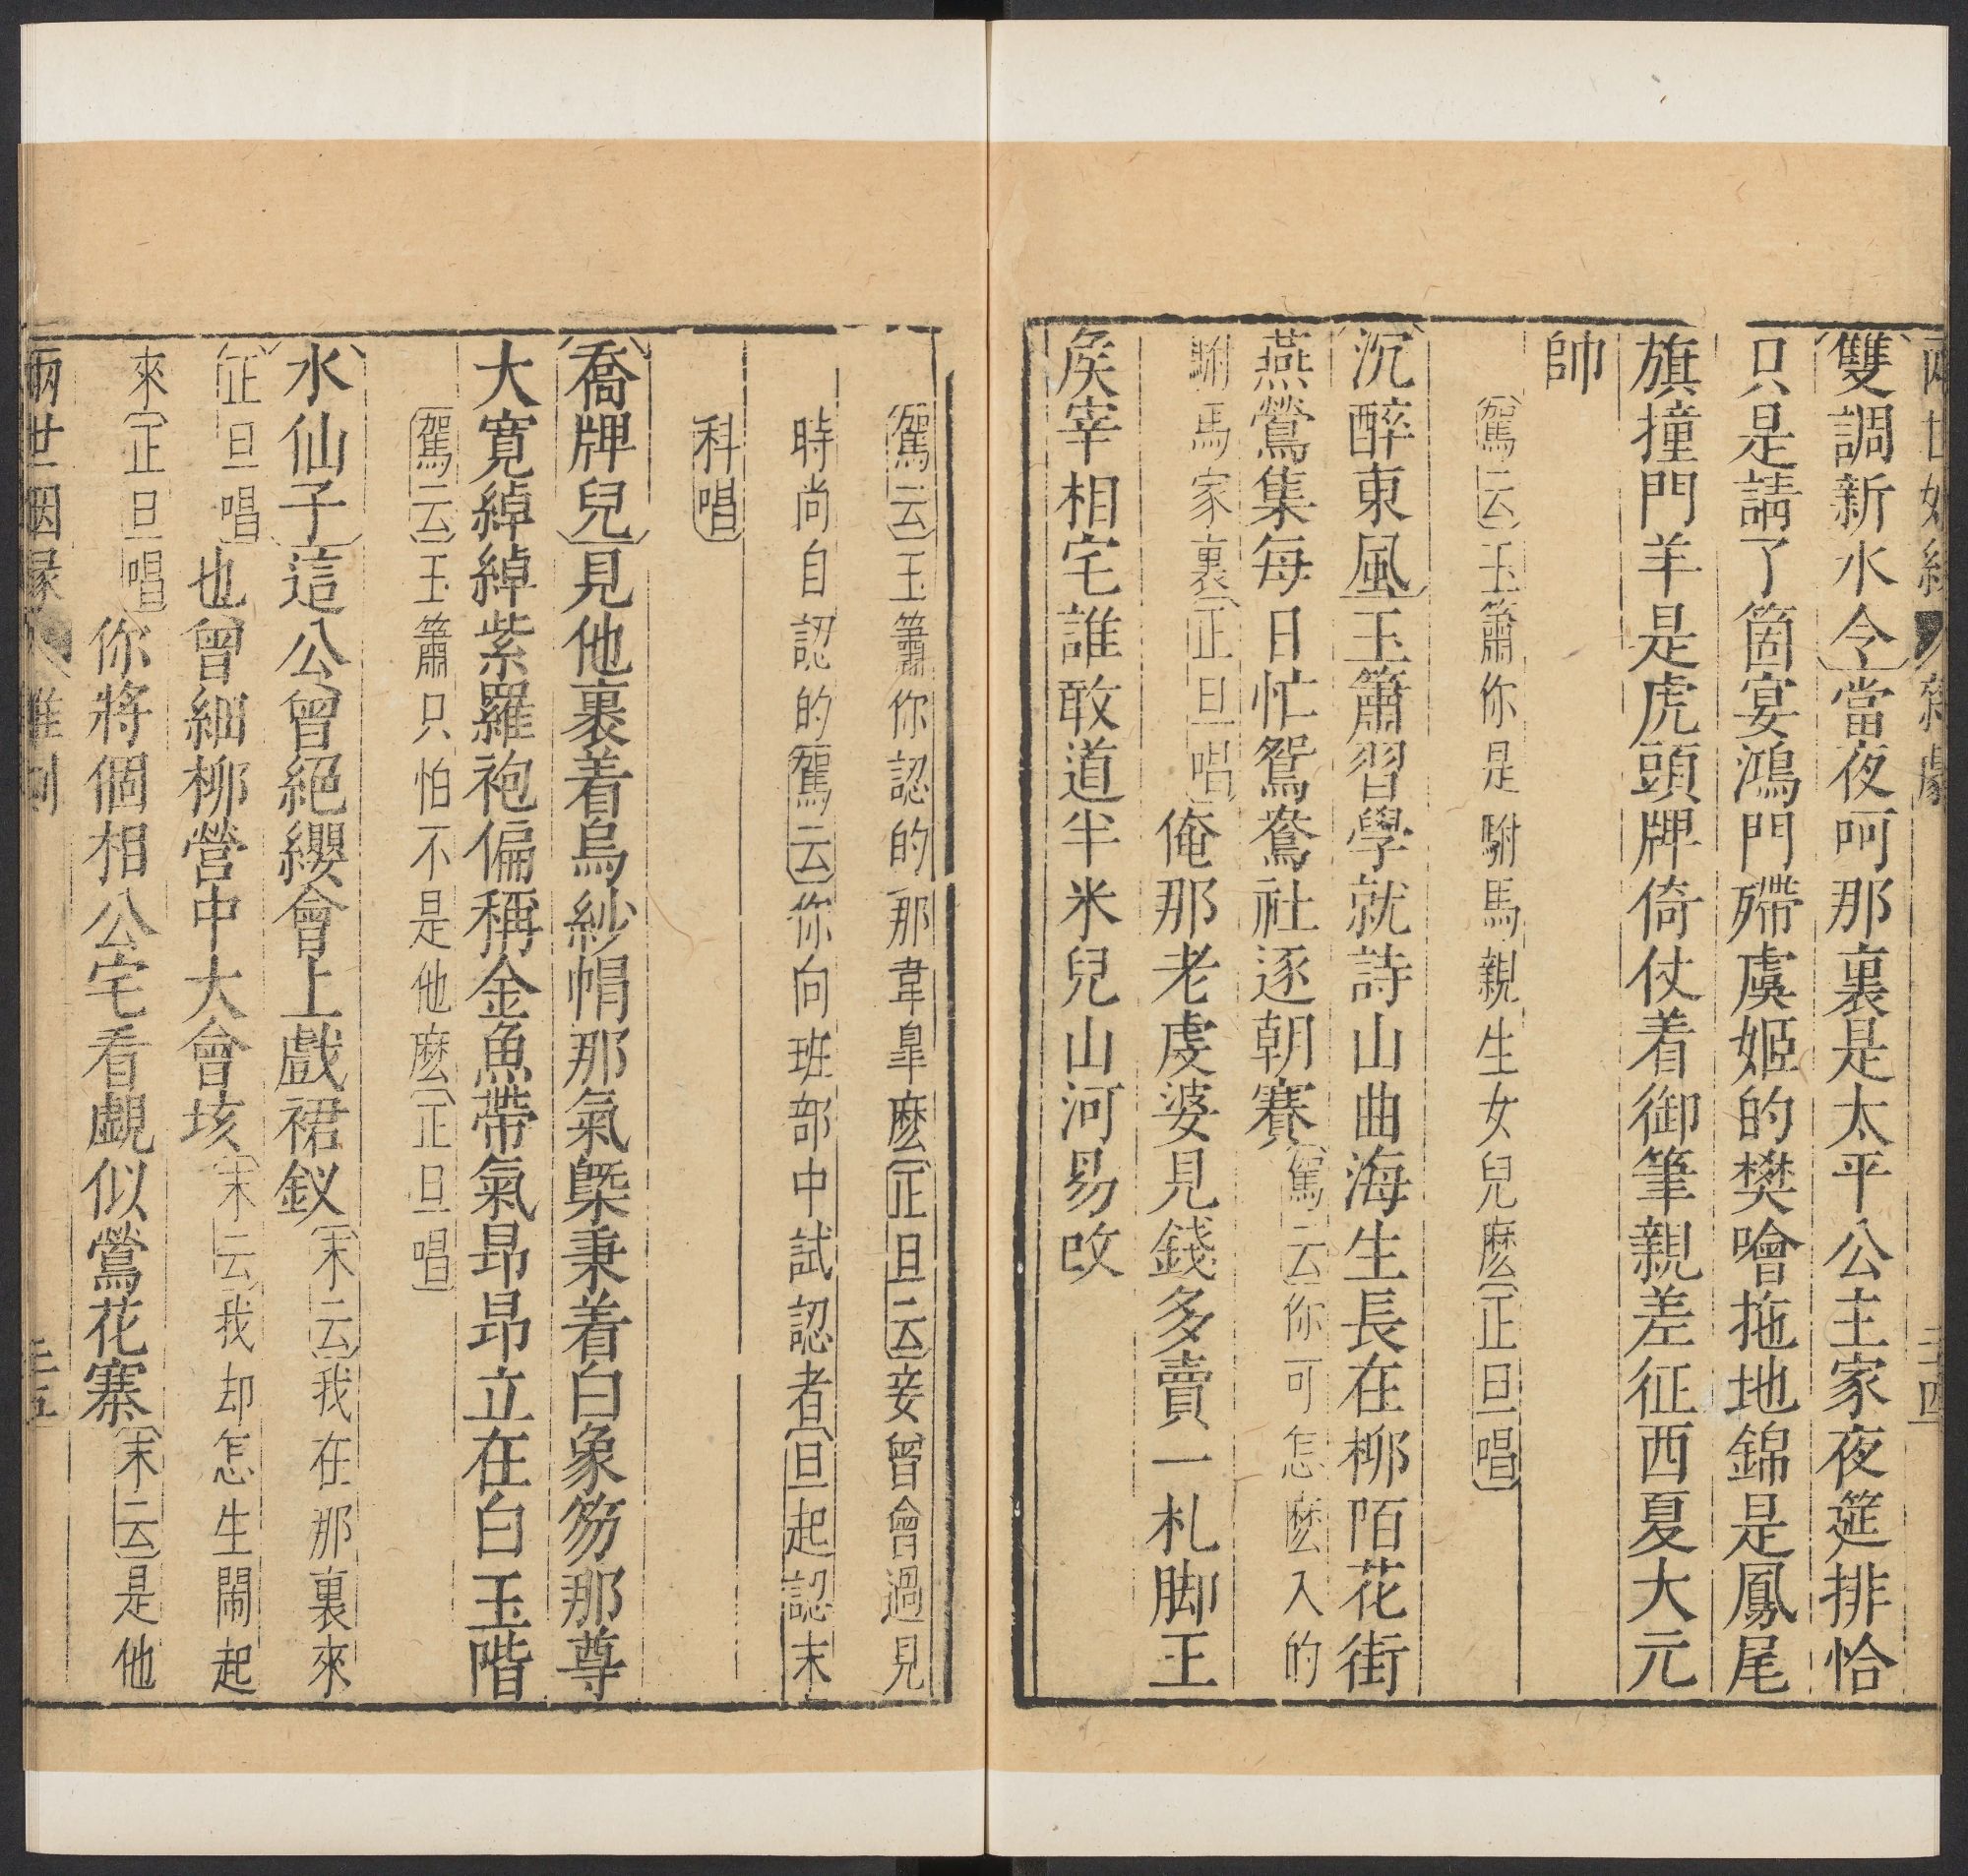 雙調新水令當夜呵那裏是太平公主家夜筵排恰
只是請了箇宴鴻門殢虞姬的樊噲拖地錦是鳳尾
旗撞門羊是虎頭牌倚仗着御筆親差征西夏大元
帥
駕云玉簫你是駙馬親生女兒麽正旦唱
沉醉東風玉簫習學就詩山曲海生長在柳陌花街
燕鶯集每日忙鴛鴦社逐朝賽駕云你可怎麽入的
駙馬家裏正旦唱俺那老虔婆見錢多賣一札脚王
矦宰相宅誰敢道半米兒山河易改
駕云玉簫你認的那韋臯麽正旦云妾曾會過見
時尚自認的駕云你向班部中試認者旦起認末
科唱
喬牌兒見他裹着烏紗帽那氣槩秉着白象笏那尊
大寛綽綽紫羅袍偏稱金魚帶氣昂昂立在白玉階
駕云玉簫只怕不是他麽正旦唱
水仙子這公曾絕纓會上戲裙釵末云我在那裏來
正旦唱也曾細柳營中大會垓末云我却怎生鬧起
來正旦唱你將個相公宅看覷似鶯花寨末云是他
兩世姻緣 雜劇 二十五